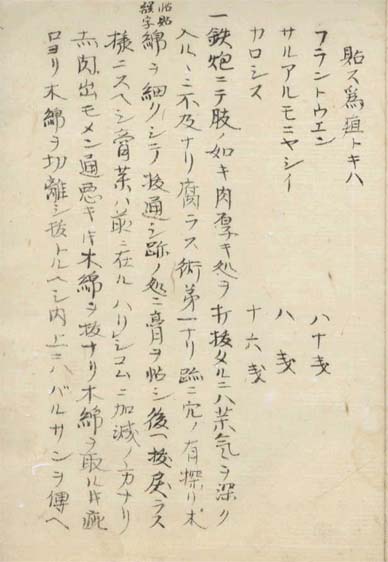 貼ス為疽トキハ
フラントウエン 八十戔
サルアルモニヤシイ 八戔
カロシス 十六戔
一鉄炮ニテ肢ノ如キ肉厚キ処ヲ打抜タルニハ薬気ヲ深ク
入ルヽニ不及ナリ腐ラス術第一ナリ跡ニ穴ノ有探リ木
綿ヲ細クシテ抜通シ跡ノ処ニ膏ヲ帖シ後ヘ抜戻ラス
帖貼誤字
様ニスヘシ膏薬ハ前ニ在ルハリシコムニ加減ノ方ナリ
肉出モメン通悪キ時木綿ヲ抜ナリ木綿ヲ取ル時疵
口ヨリ木綿ヲ切離シ抜トルヘシ内上ニハバルサンヲ傅ヘ